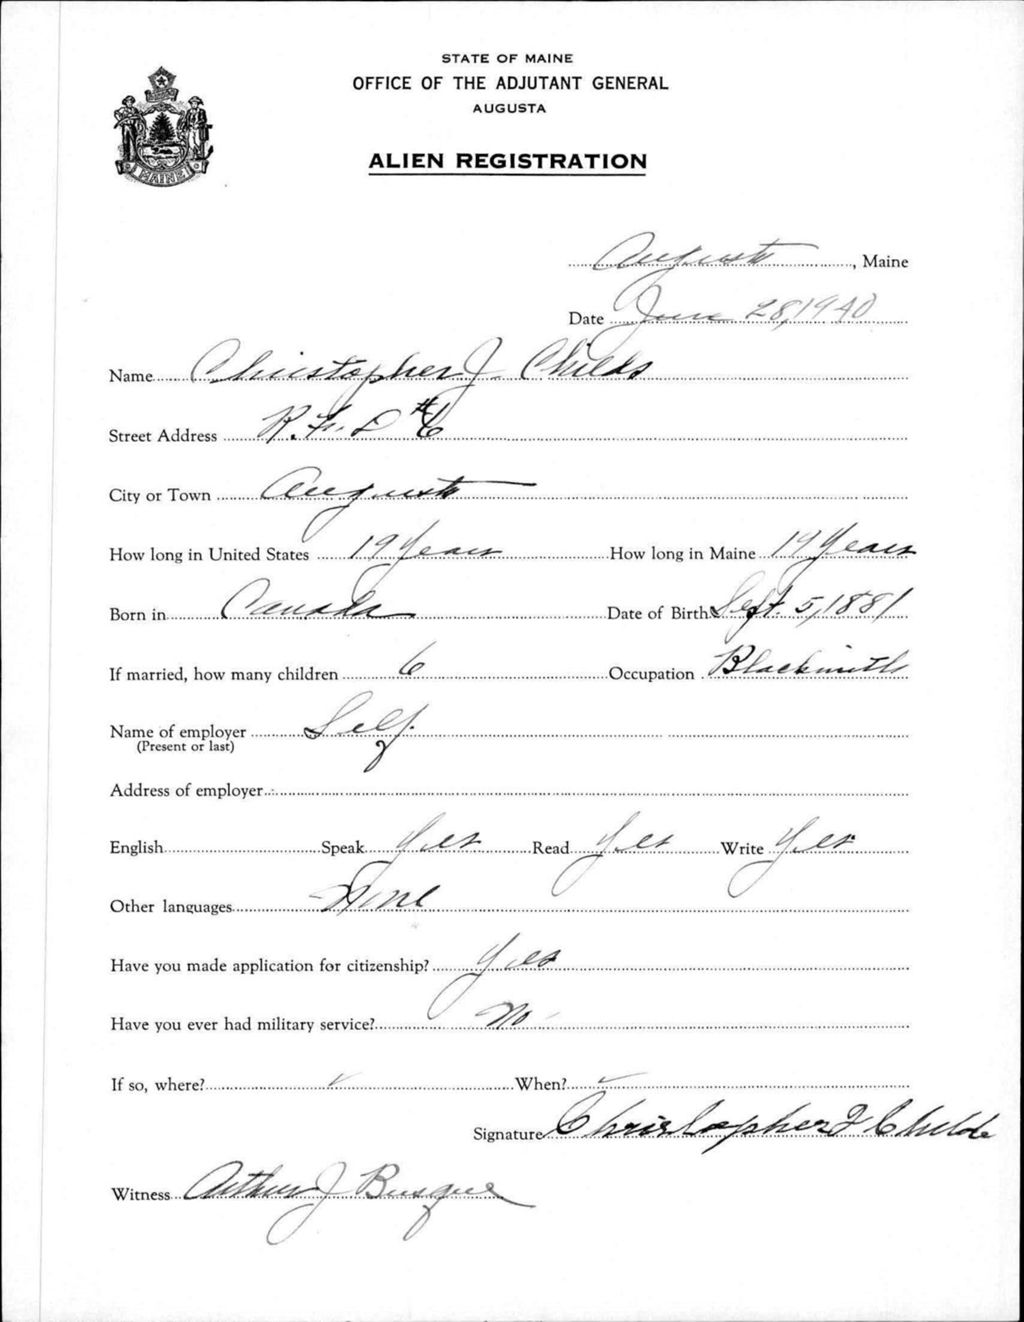 STATE OF MAINE
OFFICE OF THE ADJUTANT GENERAL
AUGUSTA
MAINE
ALIEN REGISTRATION
Augusta, Maine
Date June 28, 1940
Name Christopher J. Childs
Street Address R.F.D #6
City or Town Augusta
How long in United States 19 Years How long in Maine 19 Years
Born in Canada Date of Birth Sept. 5, 1881
If married, how many children 6 Occupation Blacksmith
Name of employer Self.
(Present or last)
Address of employer
English Speak Yes Read Yes Write Yes
Other languages None
Have you made application for citizenship? Yes
Have you ever had military service? No
If so, where? ✓ When? ✓
Signature Christopher J Childs
Witness Arthur J Busque